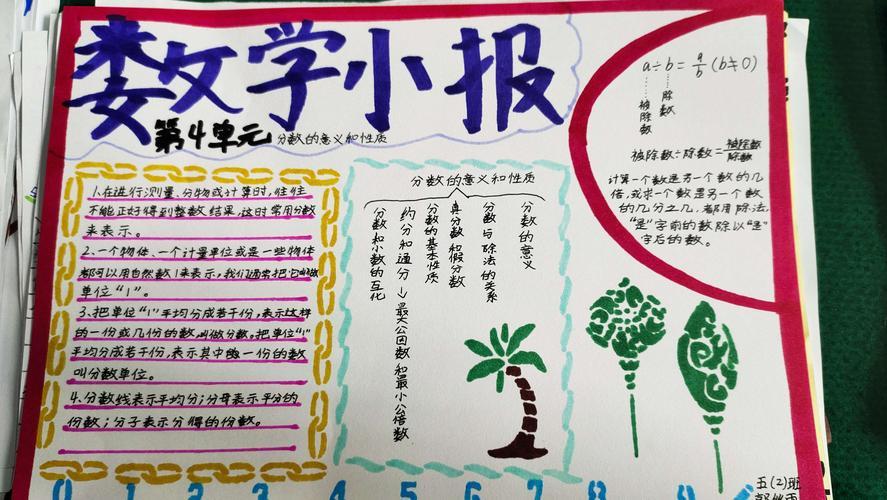 数学小报
第4单元 分数的意义和性质
1.在进行测量、分物或计算时,往往
不能正好得到整数结果,这时常用分数
来表示。
2、一个物体、一个计量单位或是一些物体
都可以用自然数1来表示,我们通常把它叫做
单位“1”。
3、把单位“1”平均分成若干份,表示这样
的一份或几份的数,叫做分数。把单位“1”
平均分成若干份,表示其中的一份的数
叫分数单位。
4、分数线表示平均分;分母表示平分的
份数;分子表示分得的份数。
分数的意义和性质
分数的意义
分数与除法的关系
真分数和假分数
分数的基本性质
约分和通分→最大公因数和最小公倍数
分数和小数的互化
a÷b=a/b(b≠0)
被除数 除数
被除数÷除数=被除数/除数
计算一个数是另一个数的几
倍,或求一个数是另一个数
的几分之几,都用除法,
“是”字前的数除以“是”
字后的数。
0 1 2 3 4 5 6 7 8 9
五(2)班